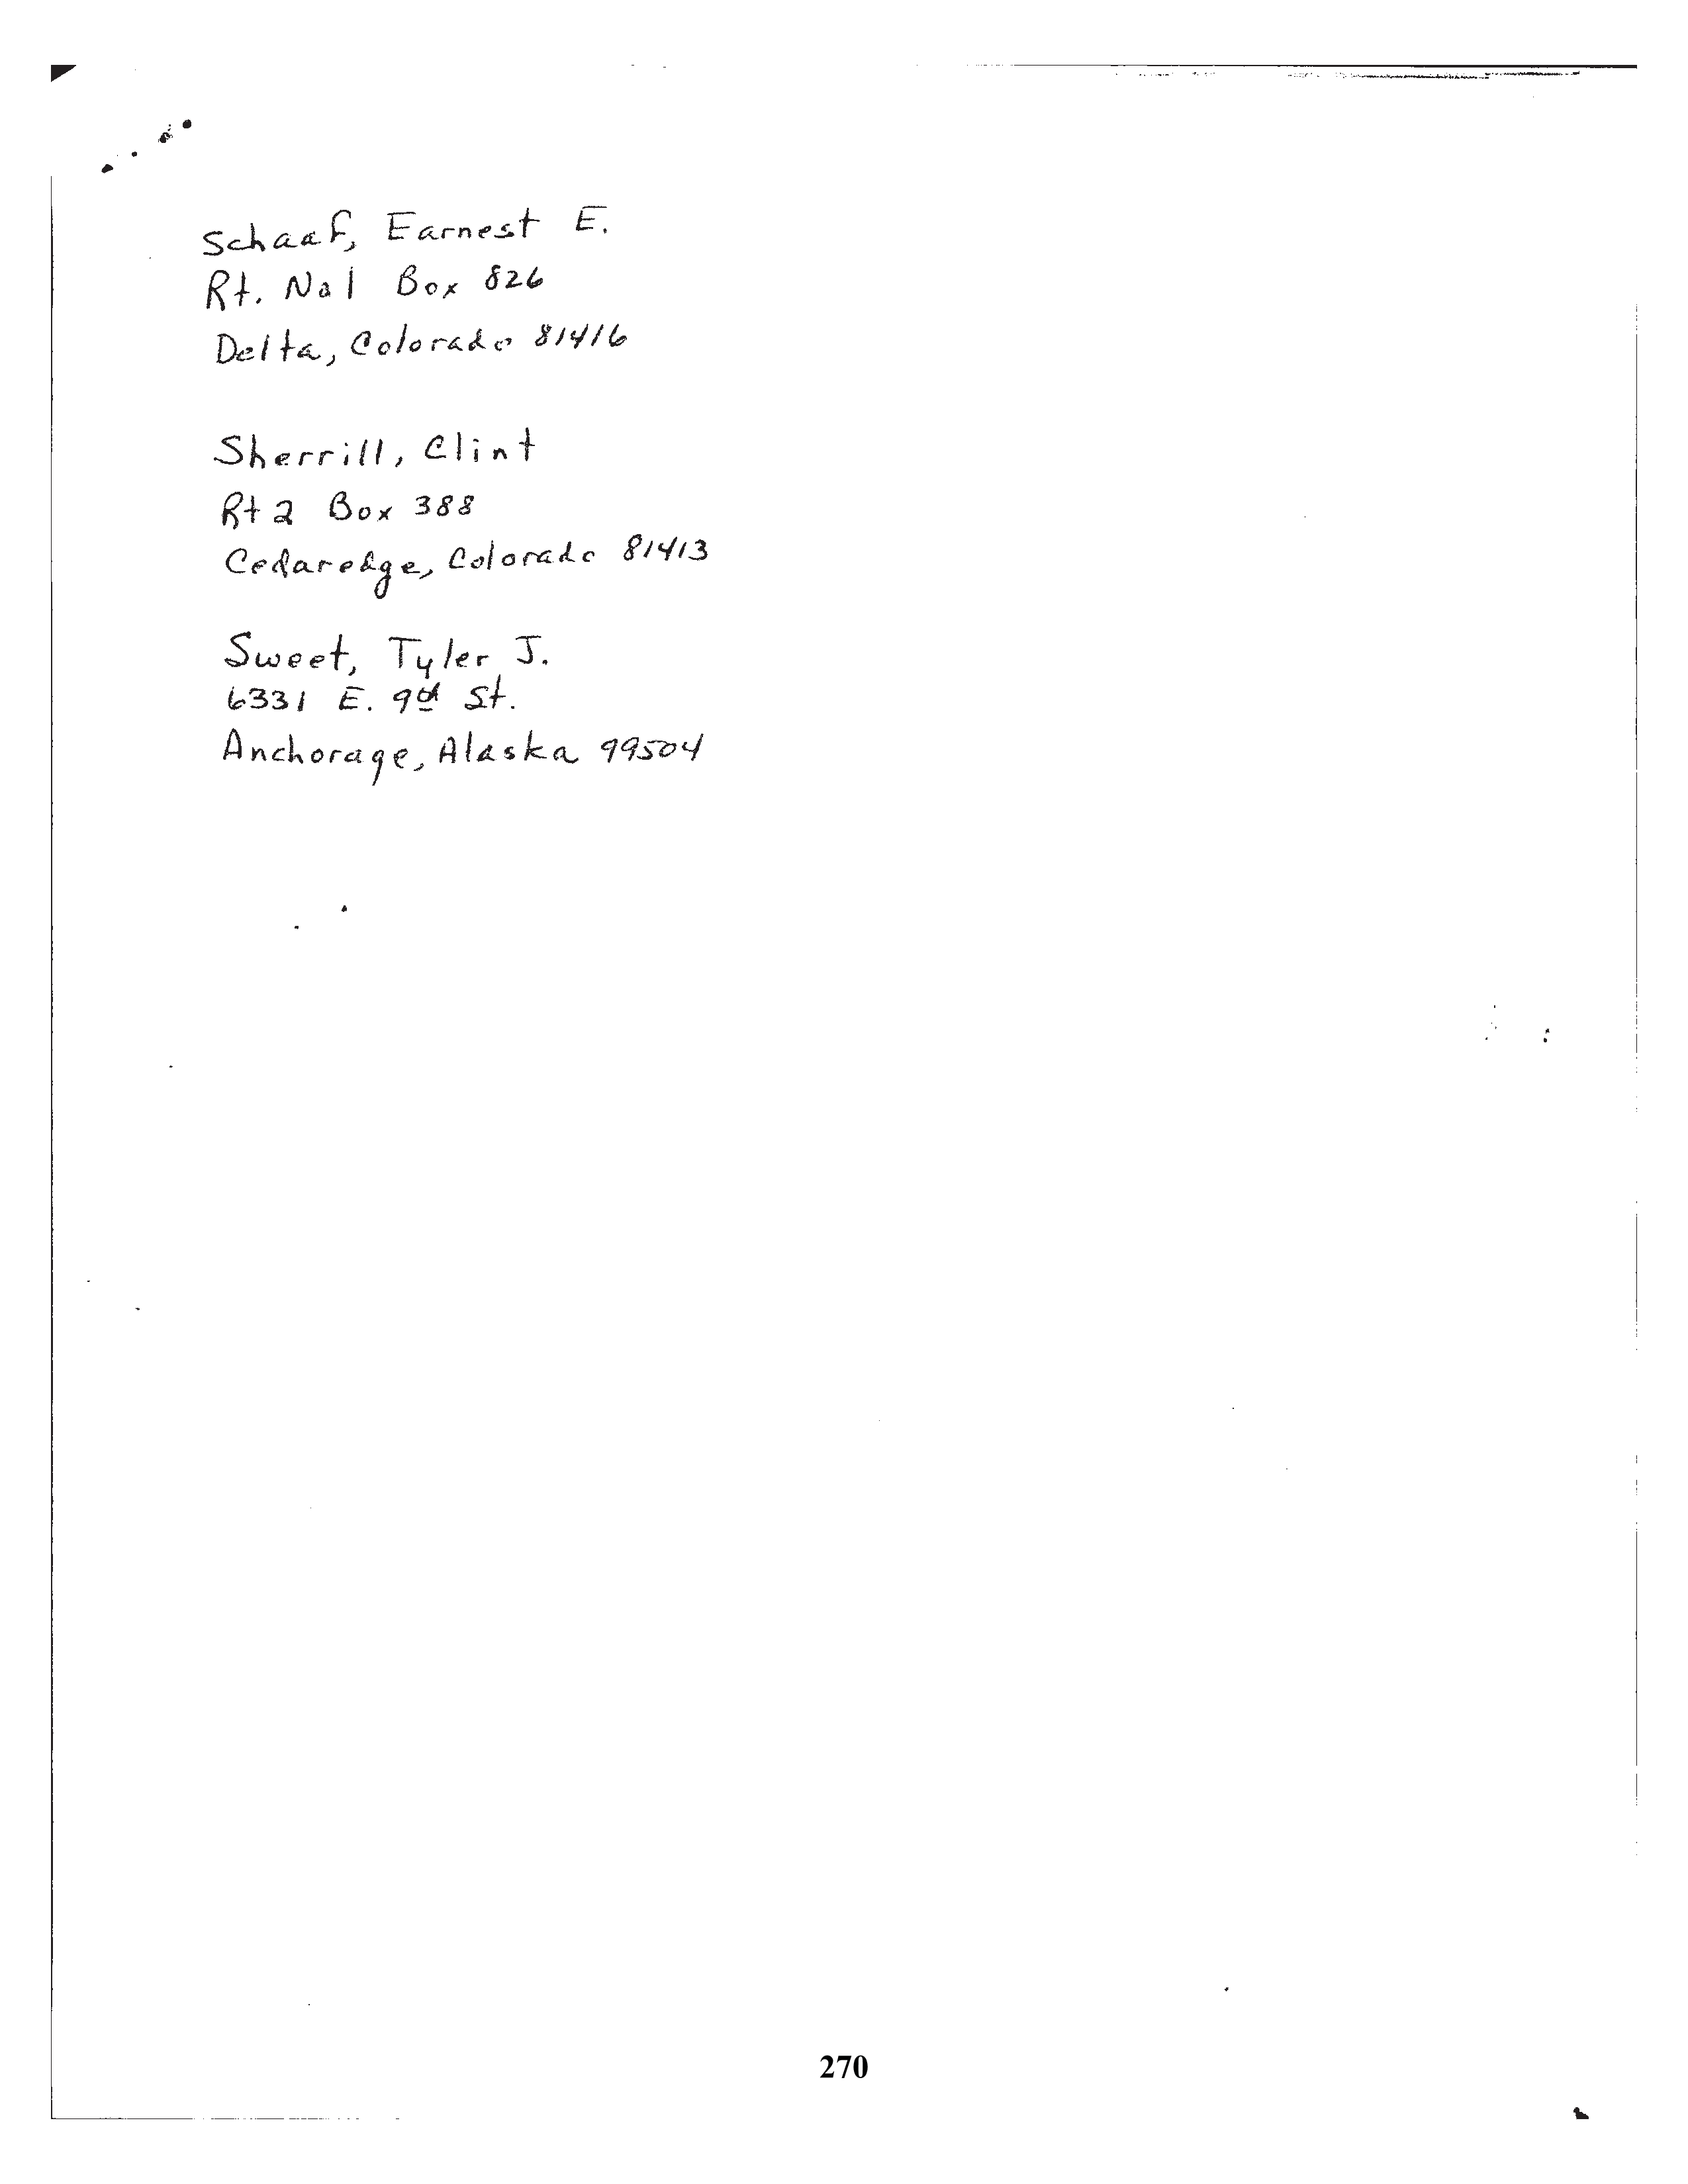 Schaaf, Earnest E.
Rt. No 1 Box 826
Delta, Colorado 81416
Sherrill, Clint
Rt 2 Box 388
Cedaredge, Colorado 81413
Sweet, Tyler J.
6331 E. 9th St.
Anchorage, Alaska 99504
270